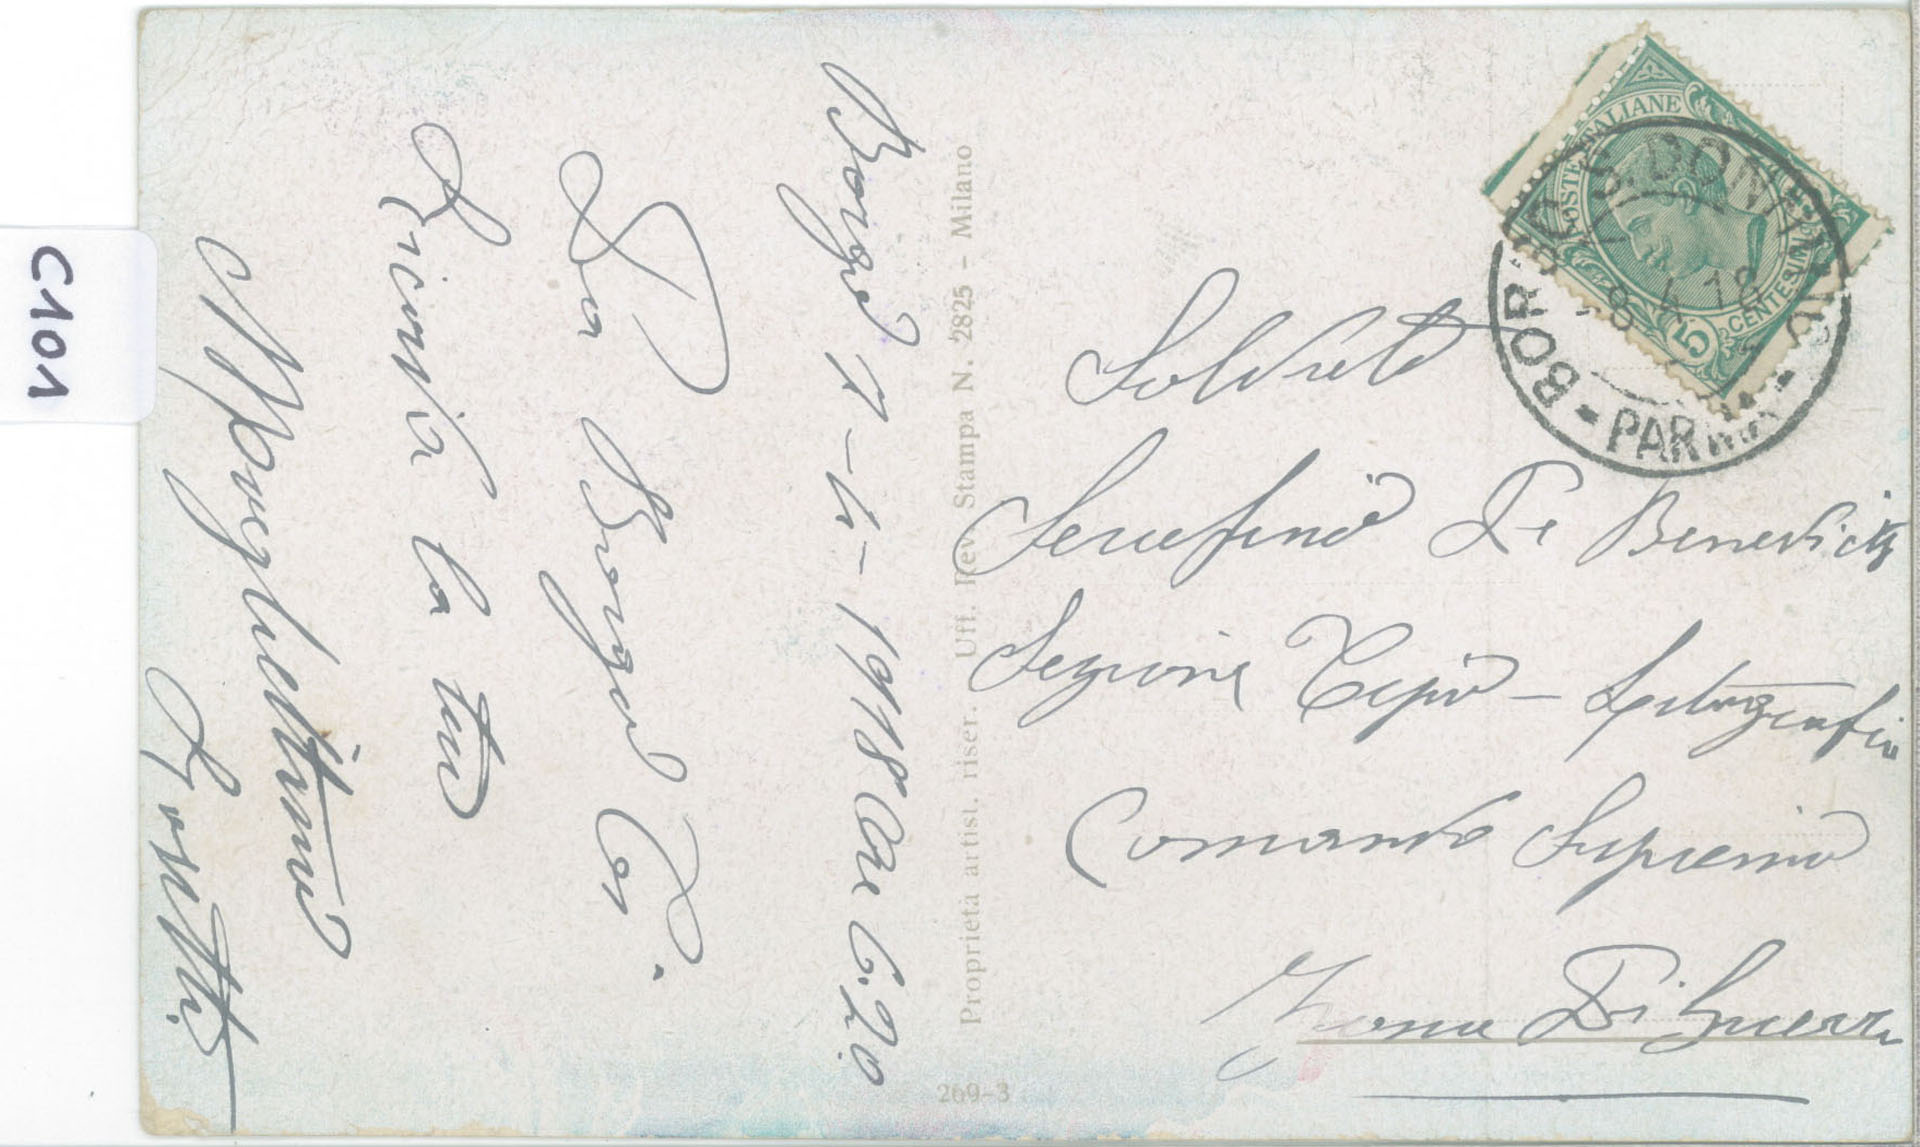 C101
Borgo 7-4-1918 Ore 6.20
Da Borgo
Ricorda la tua
Rosetta
Proprietà artist. riser. Uff. Rev. Stampa N. 2825 - Milano
269-3
POSTE ITALIANE
CENTESIMI 5
BORGO S. DONNINO
8.4.18
- PARMA -
Soldato
Serafino De Benedictis
Sezione Tipo - Litografia
Comando Supremo
Zona Di Guerra